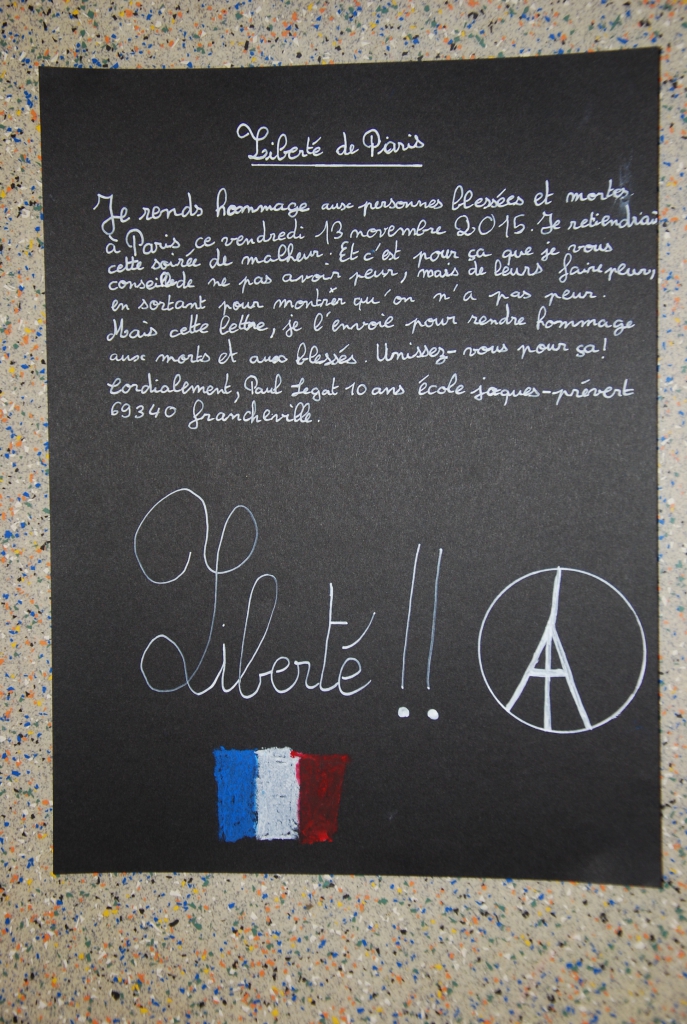 Liberté de Paris
Je rends hommage aux personnes blessées et mortes
à Paris ce vendredi 13 novembre 2015. Je retiendrai
cette soirée de malheur. Et c'est pour ça que je vous
conseille de ne pas avoir peur, mais de leurs faire peur,
en sortant pour montrer qu'on n'a pas peur.
Mais cette lettre, je l'envoie pour rendre hommage
aux morts et aux blessés. Unissez-vous pour ça!
Cordialement, Paul Legat 10 ans école jaques-prévert
69340 francheville.
Liberté !!